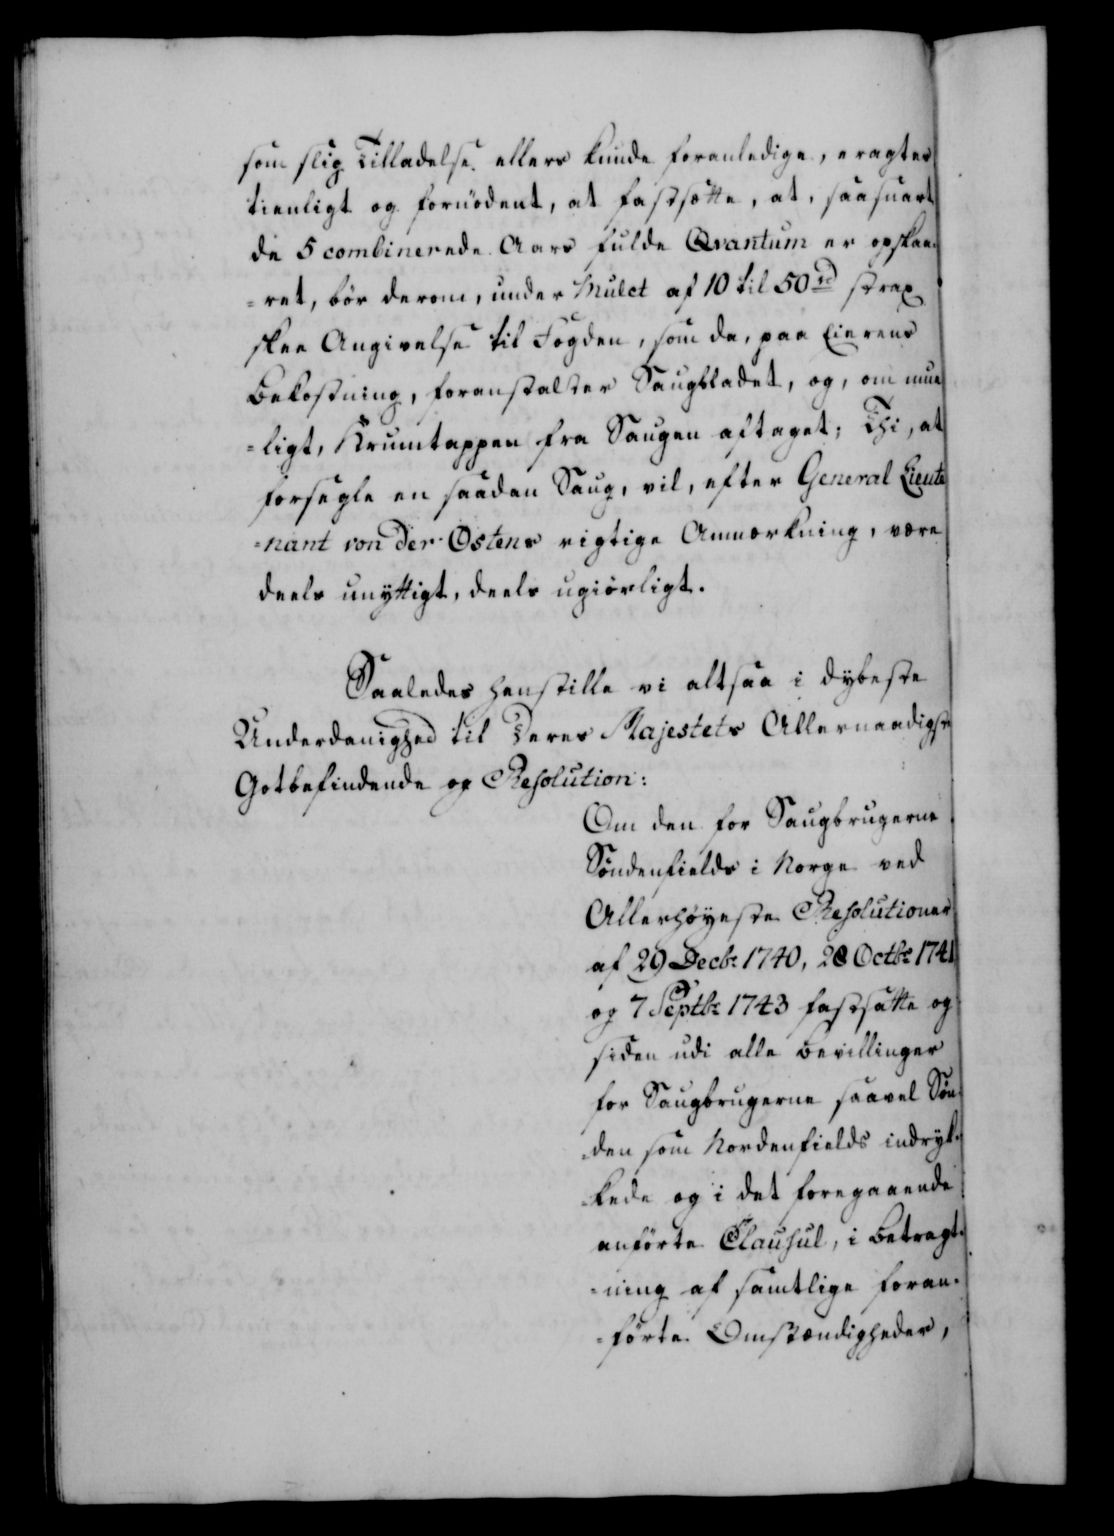 som slig Tilladelse ellers kunde foranledige, eragtes
tienligt og fornödent, at fastsætte, at, saasnart
de 5 combinerede Aars fulde Qvantum er opskaa-
=ret, bör derom, under Mulct af 10 til 50 rd strax
skee Angivelse til Fogden, som da, paa Eierens
Bekostning, foranstalter Saugbladet, og, om mue
=ligt, Krumtappen fra Saugen aftaget; Thi, at
forsegle en saadan Saug, vil, efter General Lieute
=nant von der Ostens rigtige Anmærkning, være
deels unyttigt, deels ugiörligt.
Saaledes henstille vi altsaa i dybeste
Underdanighed til Deres Majestets Allernaadigste
Gotbefindende og Resolution:
Om den for Saugbrugerne
Söndenfields i Norge ved
Allerhöyeste Resolutioner
af 29 Decbr 1740, 28 Octbr 1741
og 7 Septbr 1743 fastsatte og
siden udi alle Bevillinger
for Saugbrugerne saavel Sön-
=den som Nordenfields indryk-
=kede og i det foregaaende
anförte Clausul, i Betragt-
=ning af samtlige foran-
=förte Omstændigheder,